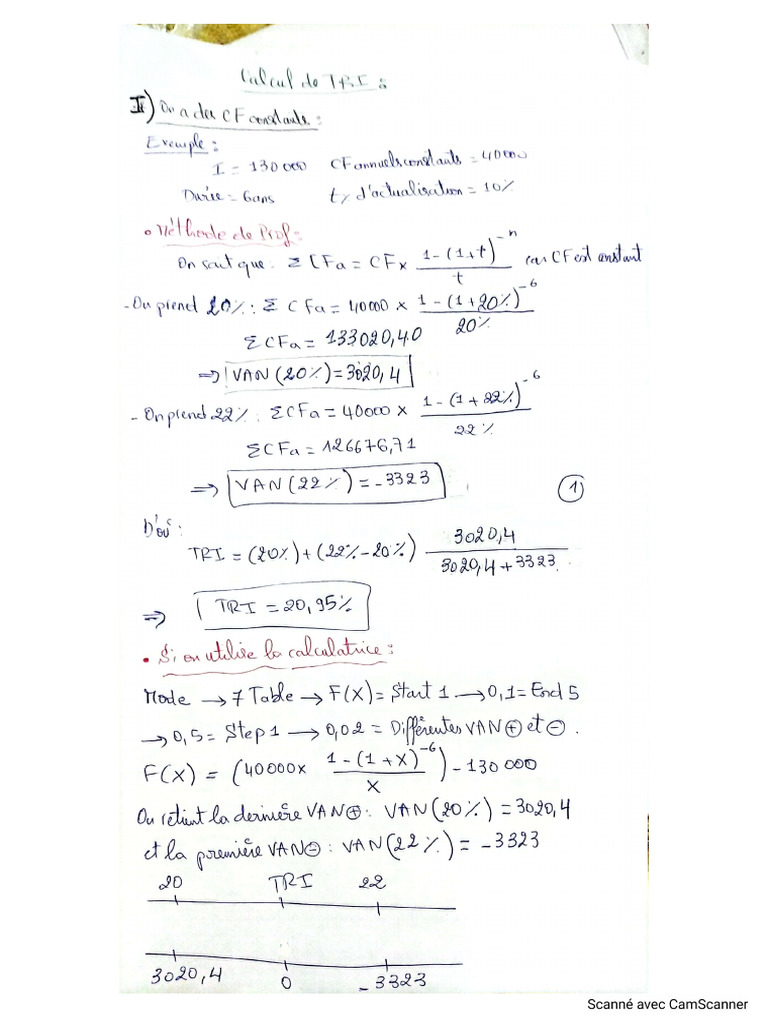 Calcul de TRI :
II) On a des CF constants :
Exemple :
I = 130 000 CF annuels constants = 40000
Durée = 6 ans t% d'actualisation = 10%
• Méthode de Prof :
On sait que : Σ CFa = CF x (1 - (1+t)^-n) / t car CF est constant
- On prend 20% : Σ CFa = 40000 x (1 - (1+20%)^-6) / 20%
ΣCFa = 133020,40
=> VAN(20%) = 3020,4
- On prend 22% : ΣCFa = 40000 x (1 - (1+22%)^-6) / 22%
ΣCFa = 126676,71
=> VAN(22%) = -3323
1
D'où :
TRI = (20%) + (22% - 20%) 3020,4 / (3020,4 + 3323)
=> TRI = 20,95%
• Si on utilise la calculatrice :
Mode → 7 Table → F(X) = Start 1 → 0,1 = End 5
→ 0,5 = Step 1 → 0,02 = Différentes VAN ⊕ et ⊖.
F(X) = (40000x (1 - (1+X)^-6) / X) - 130 000
On retient la dernière VAN⊕ : VAN(20%) = 3020,4
et la première VAN⊖ : VAN(22%) = -3323
20 TRI 22
3020,4 0 -3323
Scanné avec CamScanner